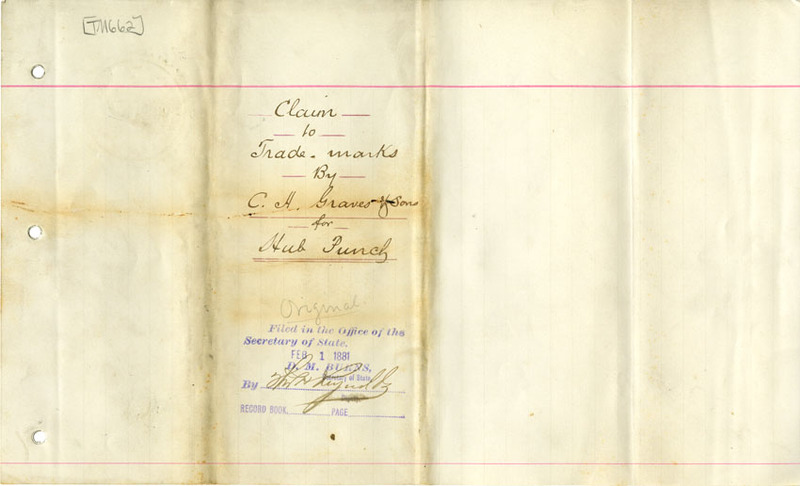 [TM662]
Claim
to
Trade-marks
By
C. H. Graves & Sons
for
Hub Punch
Original
Filed in the Office of the
Secretary of State.
FEB 1 1881
D. M. BURNS,
Secretary of State
By
RECORD BOOK, PAGE